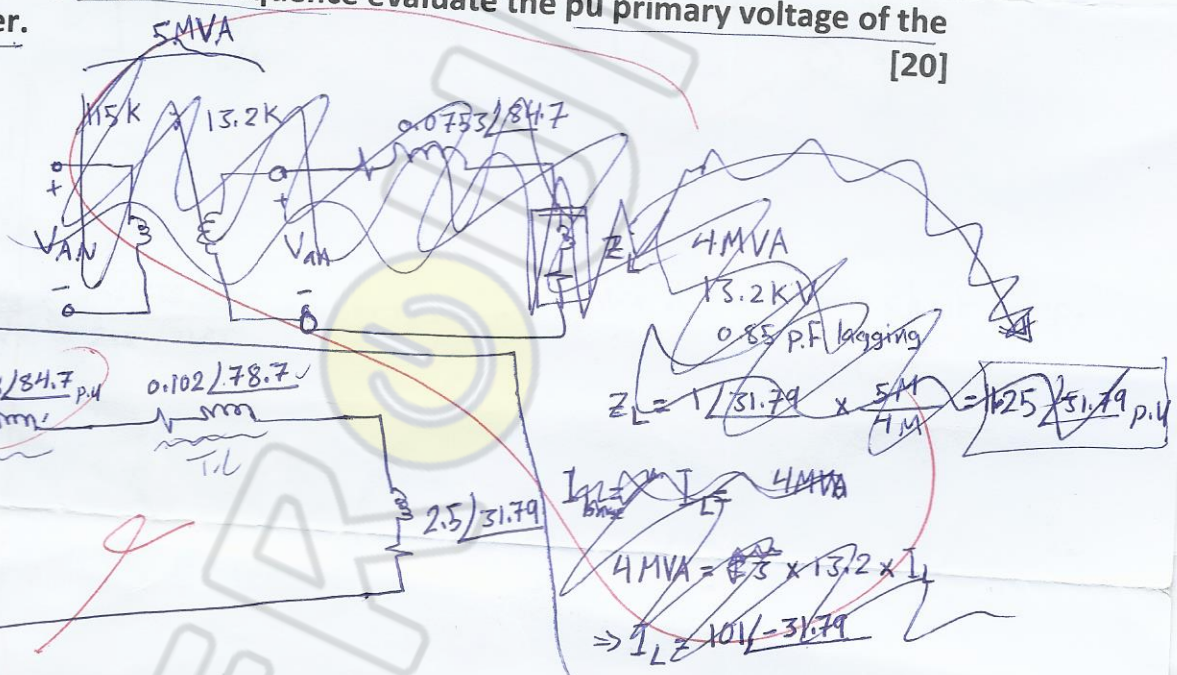 er.
quence evaluate the pu primary voltage of the
[20]
5MVA
115K 13.2K 0.0753/84.7
+ +
VAN Van ZL 4MVA
- -
13.2KV
0.85 P.F lagging
/84.7 p.u 0.102/78.7
ZL = 1/31.79 x 5M/4M = 1.25/31.79 p.u
T.L
IL = 4MVA
2.5/31.79
4MVA = √3 x 13.2 x IL
=> IL = 101/-31.79